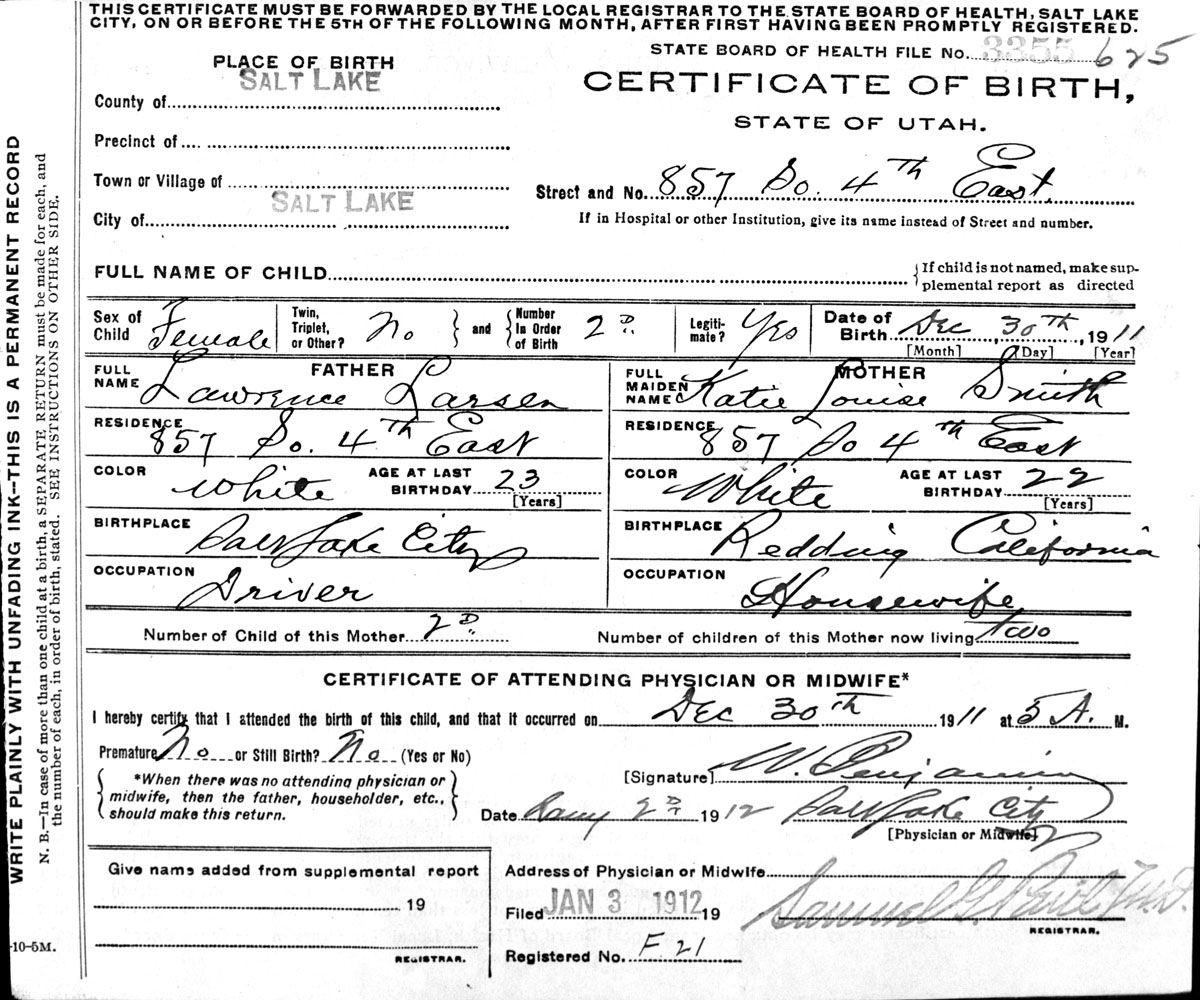 THIS CERTIFICATE MUST BE FORWARDED BY THE LOCAL REGISTRAR TO THE STATE BOARD OF HEALTH, SALT LAKE
CITY, ON OR BEFORE THE 5TH OF THE FOLLOWING MONTH, AFTER FIRST HAVING BEEN PROMPTLY REGISTERED.
STATE BOARD OF HEALTH FILE No. 3355 625
PLACE OF BIRTH
CERTIFICATE OF BIRTH,
STATE OF UTAH.
County of SALT LAKE
Precinct of
Town or Village of
Street and No. 857 So. 4th East
City of SALT LAKE
If in Hospital or other Institution, give its name instead of Street and number.
FULL NAME OF CHILD
If child is not named, make sup-
plemental report as directed
Sex of Child Female
Twin, Triplet, or Other? No and Number In Order of Birth 2D
Legiti-mate? Yes
Date of Birth Dec 30th, 1911
[Month] [Day] [Year]
FATHER
FULL NAME Lawrence Larsen
RESIDENCE 857 So. 4th East
COLOR White AGE AT LAST BIRTHDAY 23
[Years]
BIRTHPLACE Salt Lake City
OCCUPATION Driver
MOTHER
FULL MAIDEN NAME Katie Louise Smith
RESIDENCE 857 So 4th East
COLOR White AGE AT LAST BIRTHDAY 22
[Years]
BIRTHPLACE Redding California
OCCUPATION Housewife
Number of Child of this Mother 2D
Number of children of this Mother now living two
CERTIFICATE OF ATTENDING PHYSICIAN OR MIDWIFE*
I hereby certify that I attended the birth of this child, and that it occurred on Dec 30th 1911 at 5 A. M.
Premature No or Still Birth? No (Yes or No)
*When there was no attending physician or
midwife, then the father, householder, etc.,
should make this return.
[Signature] W. Benjamin
Date 2D 1912 Salt Lake City
[Physician or Midwife]
Give name added from supplemental report
19
REGISTRAR.
Address of Physician or Midwife
Filed JAN 3 1912 19
Samuel G Paul M.D.
REGISTRAR.
Registered No. F 21
WRITE PLAINLY WITH UNFADING INK—THIS IS A PERMANENT RECORD
N. B.—In case of more than one child at a birth, a SEPARATE RETURN must be made for each, and
the number of each, in order of birth, stated. SEE INSTRUCTIONS ON OTHER SIDE.
-10-5M.